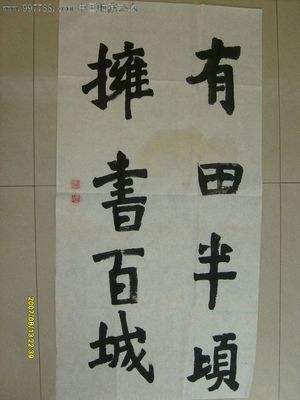 www.997788.com
有田半頃
擁書百城
2007/08/13 22:39